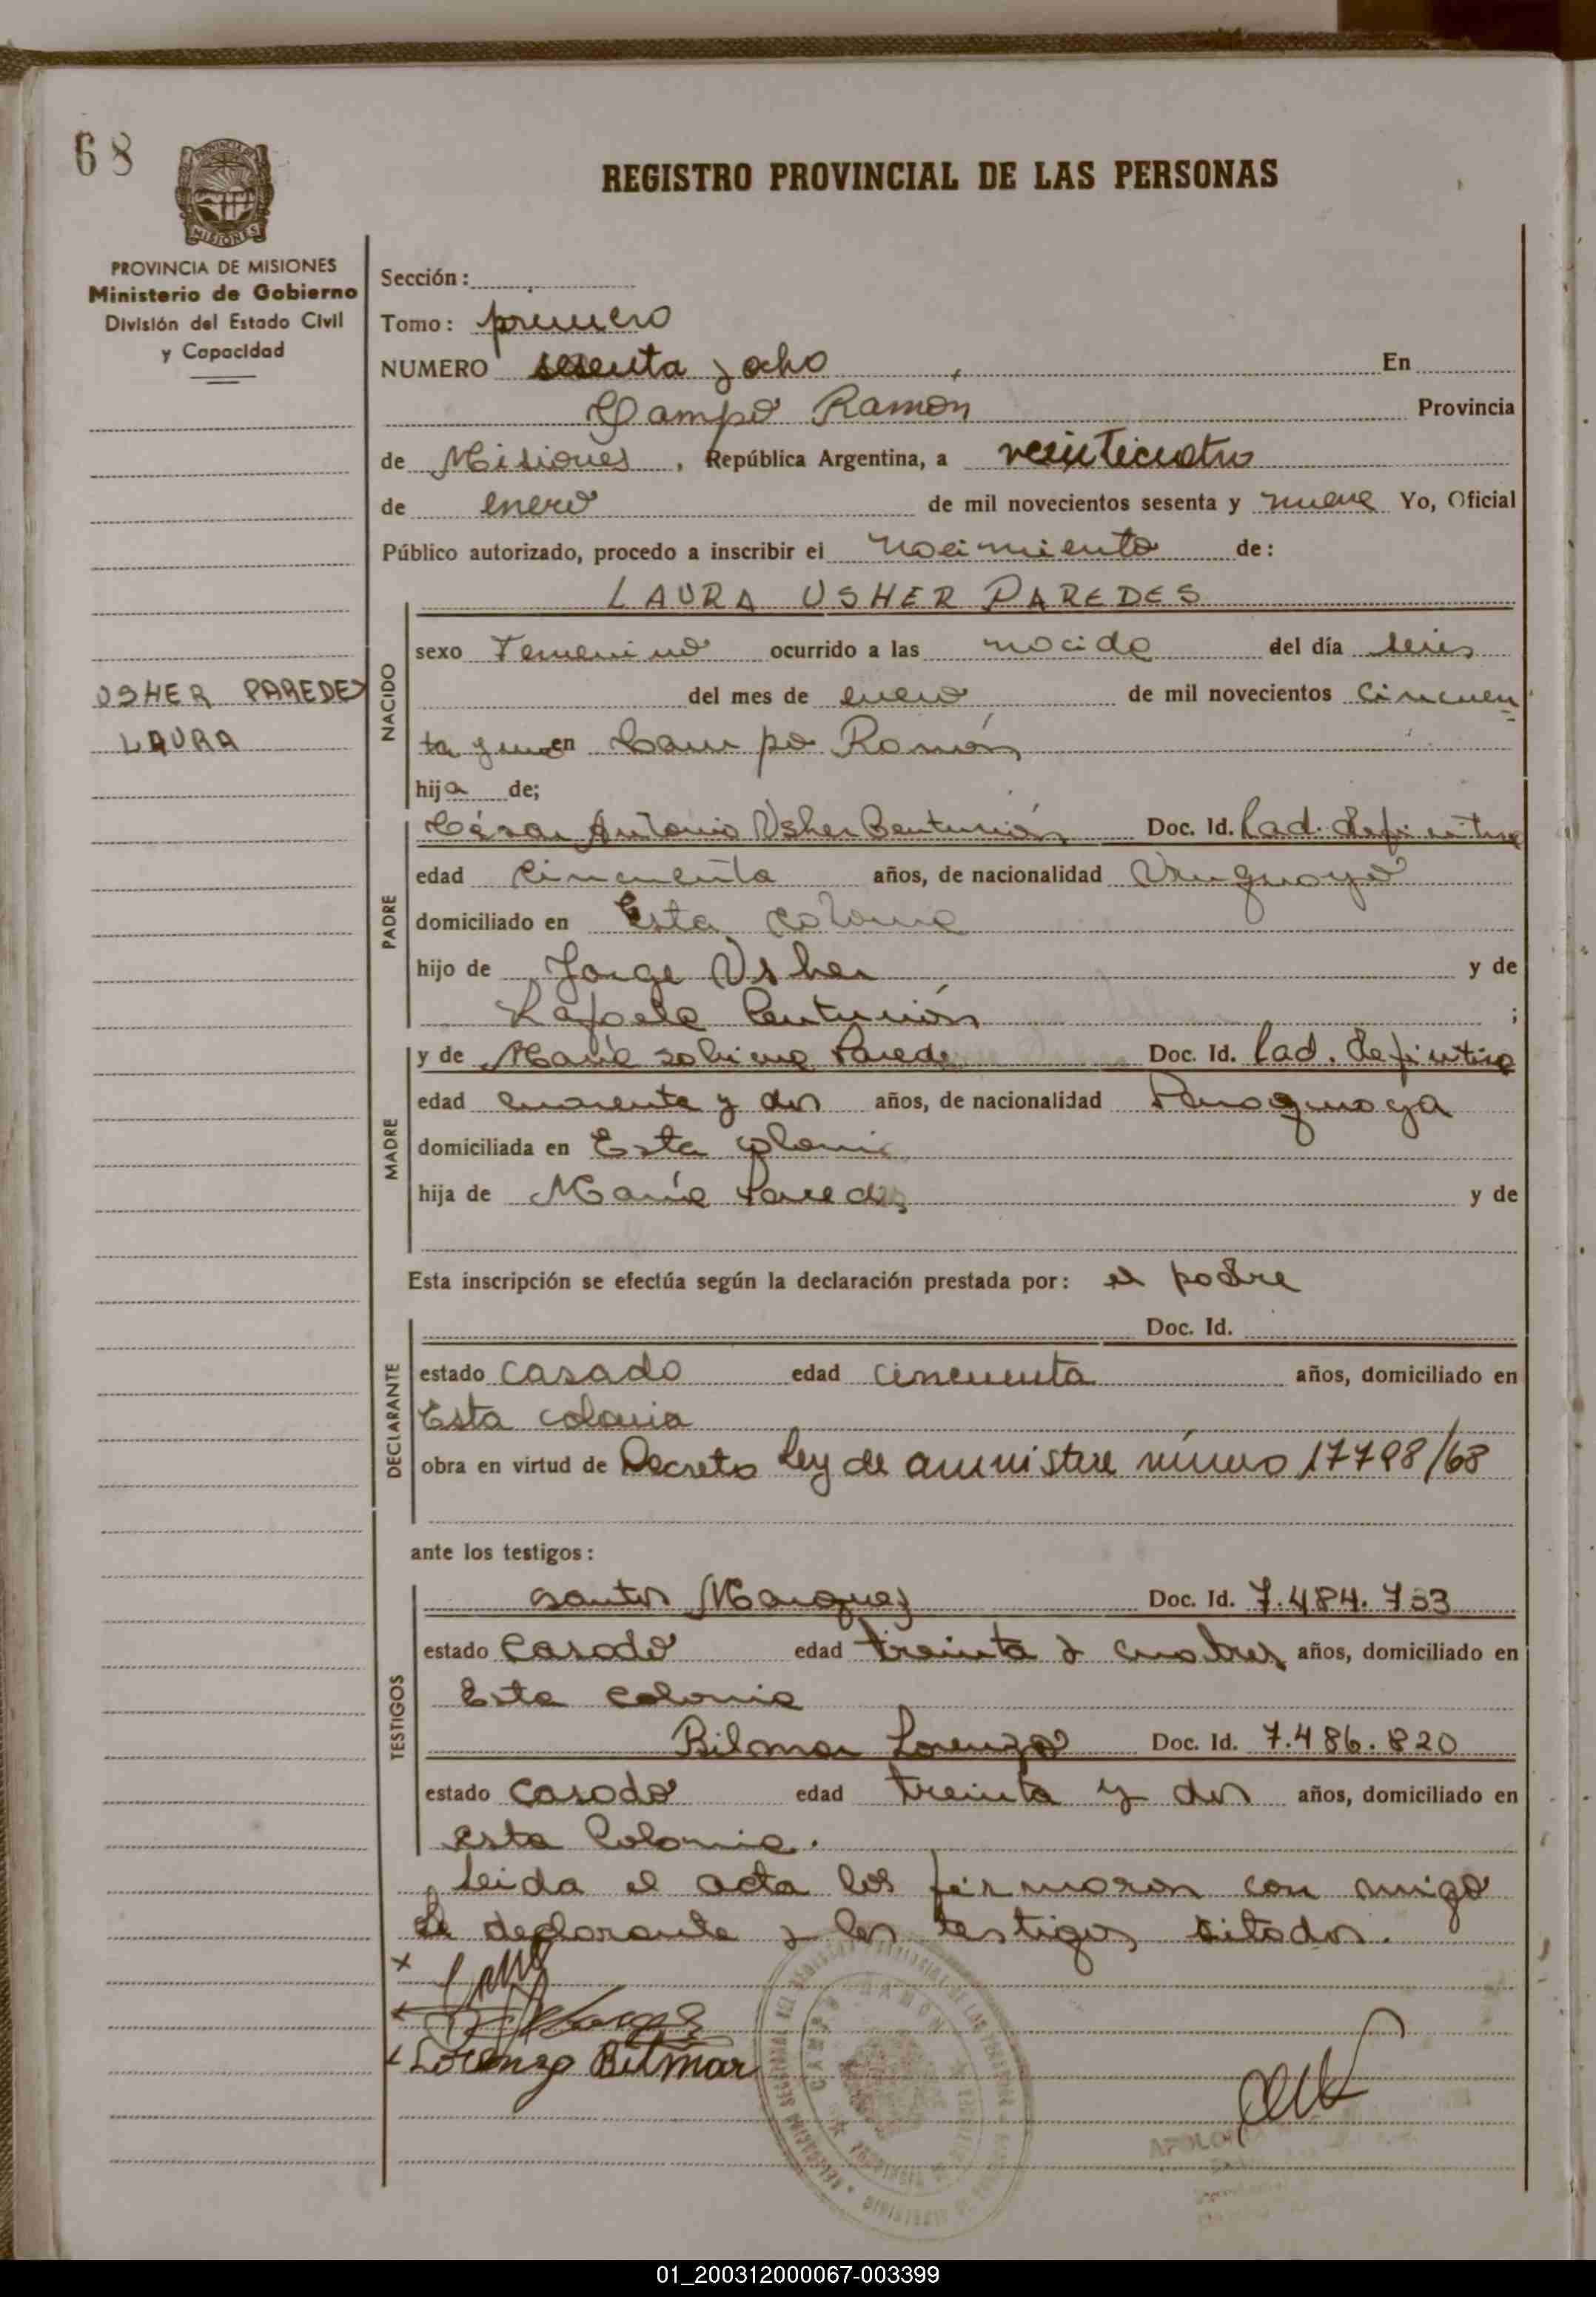 68
REGISTRO PROVINCIAL DE LAS PERSONAS
PROVINCIA DE MISIONES
Ministerio de Gobierno
División del Estado Civil
y Capacidad
Sección:
Tomo: primero
NUMERO sesenta y ocho En
Campo Ramón Provincia
de Misiones, República Argentina, a veinticuatro
de enero de mil novecientos sesenta y nueve Yo, Oficial
Público autorizado, procedo a inscribir el nacimiento de:
LAURA USHER PAREDES
USHER PAREDES
LAURA
NACIDO
sexo Femenino ocurrido a las nacida del día seis
del mes de enero de mil novecientos cincuen
ta y uno en Campo Ramón
hija de;
PADRE
César Antonio Usher Centurión Doc. Id. Cad. definitiva
edad cincuenta años, de nacionalidad Uruguayo
domiciliado en Esta colonia
hijo de Jorge Usher y de
Rafaela Centurión ;
MADRE
y de María Sabina Paredes Doc. Id. Cad. definitiva
edad cuarenta y dos años, de nacionalidad Paraguaya
domiciliada en Esta colonia
hija de María Paredes y de
Esta inscripción se efectúa según la declaración prestada por: el padre
DECLARANTE
Doc. Id.
estado casado edad cincuenta años, domiciliado en
Esta colonia
obra en virtud de Decreto Ley de amnistia número 17798/68
ante los testigos:
TESTIGOS
Santos Marquez Doc. Id. 7.484.733
estado casado edad treinta y cuatro años, domiciliado en
Esta colonia
Bilmar Lorenzo Doc. Id. 7.486.820
estado casado edad treinta y dos años, domiciliado en
esta Colonia.
Leida el acta los firmaron con migo
el declarante y los testigos citados.
Lorenzo Bilmar
CAMPO RAMON
01_200312000067-003399